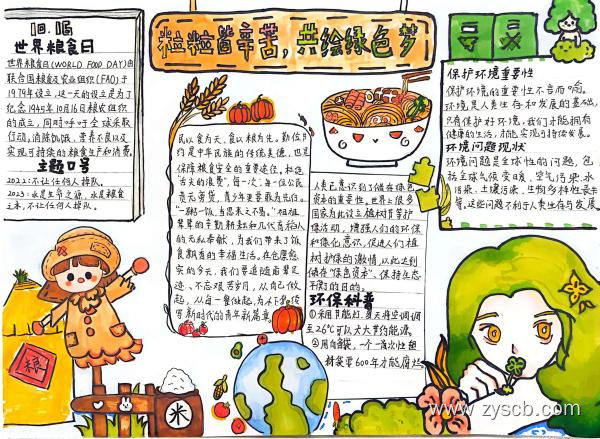 粒粒皆辛苦,共绘绿色梦
10.16
世界粮食日
世界粮食日(WORLD FOOD DAY)由
联合国粮食及农业组织(FAO)于
1979年设立,这一天的设立是为了
纪念1945年10月16日粮农组织
的成立,同时呼吁全球采取
行动,消除饥饿、营养不良以及
实现可持续的粮食生产和消费。
主题口号
2022:不让任何人掉队。
2023:水是生命之源,水是粮食
之本,不让任何人掉队。
民以食为天,食以粮为先。勤俭节
约是中华民族的传统美德,也是
保障粮食安全的重要途径。杜绝
"舌尖的浪费",每一次、每一位公民
责无旁贷,青少年更要身为先行。
"一粥一饭,当思来之不易。"祖祖
辈辈的辛勤耕耘和几代育种人
的无私奉献,为我们带来了饭
食飘香的幸福生活。在仓廪愈
实的今天,我们要追随前辈足
迹、不忘艰苦岁月,从自己做
起,从每一餐做起,为
写新时代的青年新篇章
人类已意识到了储存绿色
资本的重要性。世界上很多
国家为此设立植树节等护
绿活动,增强人们的环保
和绿化意识,促进人们植
树护绿的激情,以此达到
储存"绿色资本"、保持生态
平衡的目的。
环保科普
①采用节能灯,夏天将空调调
至26℃可以大大节约能源。
②用布袋,一个一次性塑
料袋需600年才能腐烂
绿
保护环境重要性
保护环境的重要性不言而喻。
环境是人类生存和发展的基础,
只有保护好环境,我们才能拥有
健康的生活,才能实现可持续发展。
环境问题现状
环境问题是全球性的问题,包
括全球气候变暖、空气污染、水
污染、土壤污染、生物多样性丧失
等,这些问题不利于人类生存与发展。
粮
米
www.zyscb.com